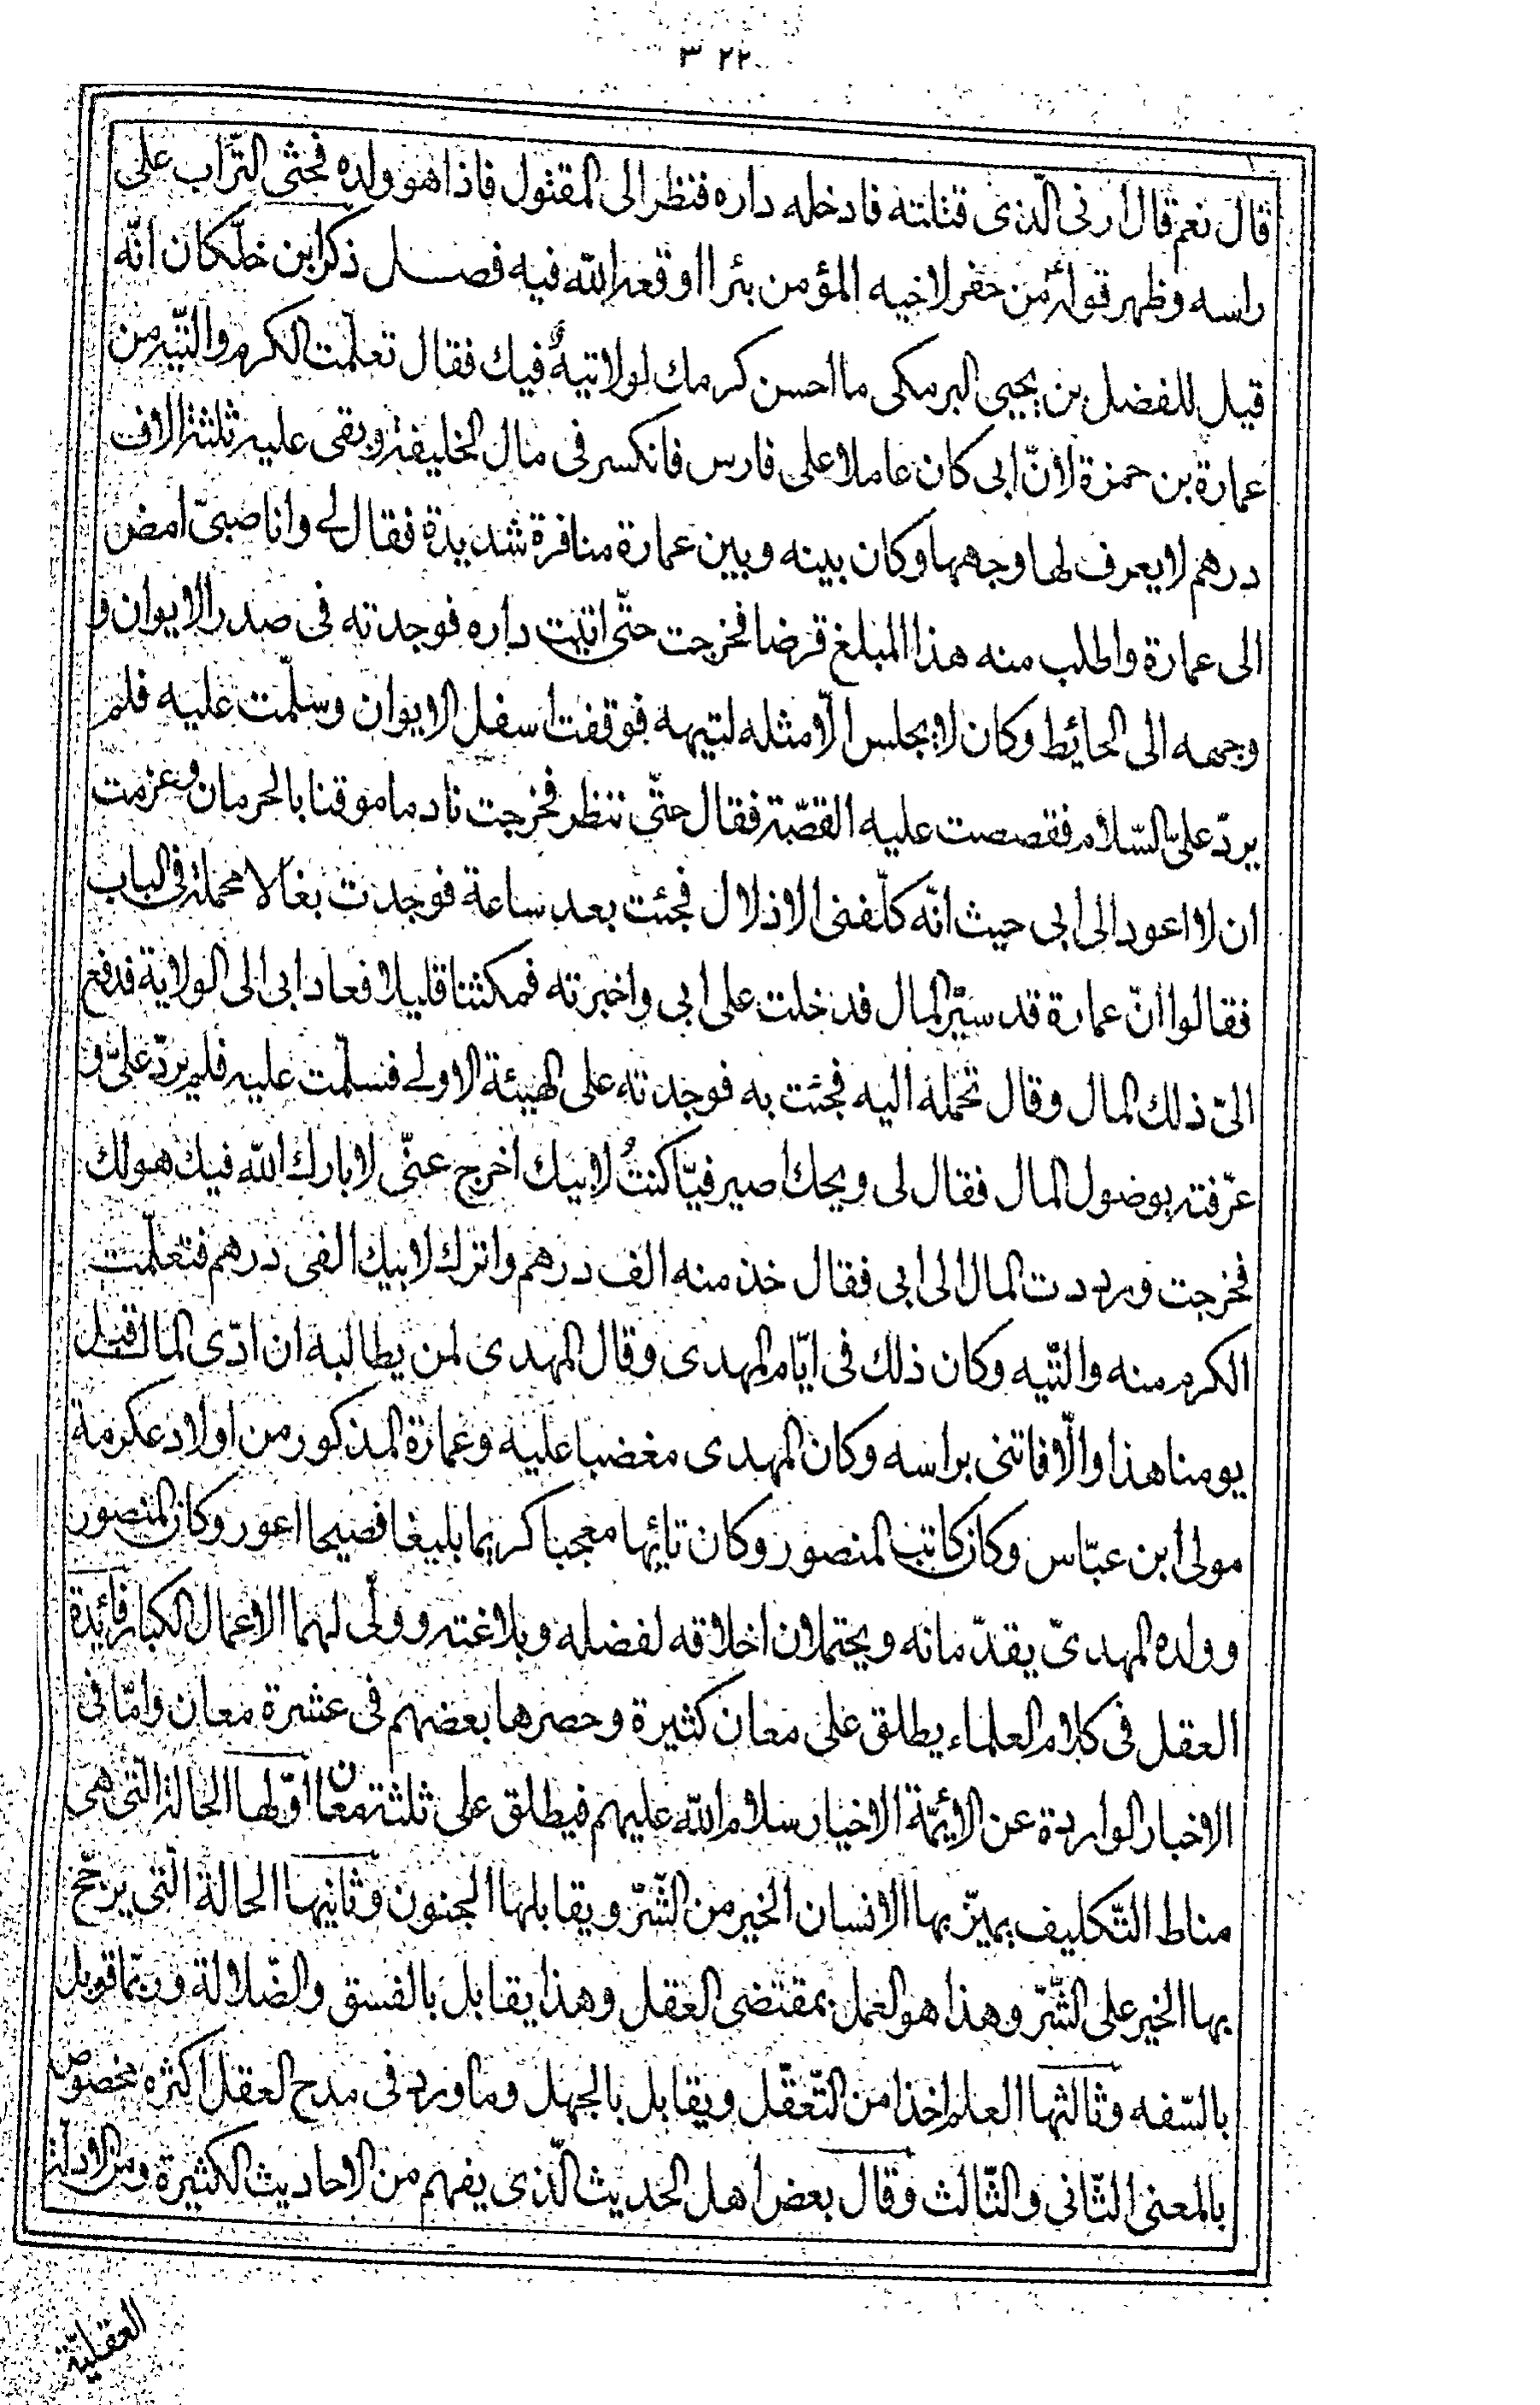 ٣٢٢
قال نعم قال ارنى الّذى قتلته فادخله داره فنظر الى المقتول فاذا هو ولده فحثى التّراب على
راسه وظهر قوله من حفر لاخيه المؤمن بئرا اوقعه اللّه فيه فصــل ذكر ابن خلّكان انّه
قيل للفضل بن يحيى البرمكى ما احسن كرمك لولا تيهٌ فيك فقال تعلّمت الكرم والتّيه من
عمارة بن حمزة لانّ ابى كان عاملا على فارس فانكسر فى مال الخليفة وبقى عليه ثلثة الاف
درهم لا يعرف لها وجهها وكان بينه وبين عمارة منافرة شديدة فقال لى وانا صبىّ امض
الى عمارة واطلب منه هذا المبلغ قرضا فخرجت حتّى اتيت داره فوجدته فى صدر الايوان و
وجهه الى الحائط وكان لا يجلس الّا مثله لتيهه فوقفت اسفل الايوان وسلّمت عليه فلم
يردّ علىّ السّلام فقصصت عليه القصّة فقال حتّى ننظر فخرجت نادما موقنا بالحرمان وعزمت
ان لا اعود الى ابى حيث انّه كلّفنى الاذلال فجئت بعد ساعة فوجدت بغالا محملة فى الباب
فقالوا انّ عمارة قد سيّر المال فدخلت على ابى واخبرته فمكثنا قليلا فعاد ابى الى الولاية فدفع
الىّ ذلك المال وقال تحمله اليه فجئت به فوجدته على الهيئة الاولى فسلّمت عليه فلم يردّ علىّ و
عرّفته بوصول المال فقال لى ويحك اصيرفيّا كنتُ لابيك اخرج عنّى لا بارك اللّه فيك هو لك
فخرجت ورددت المال الى ابى فقال خذ منه الف درهم واترك لابيك الفى درهم فتعلّمت
الكرم منه والتّيه وكان ذلك فى ايّام المهدى وقال المهدى لمن يطالبه ان ادّى المال قبل
يومنا هذا والّا فاتنى براسه وكان المهدى مغضبا عليه وعمارة المذكور من اولاد عكرمة
مولى ابن عبّاس وكان كاتب المنصور وكان تائها معجبا كريما بليغا فصيحا اعور وكان المنصور
وولده المهدىّ يقدّمانه ويحتملان اخلاقه لفضله وبلاغته وولّى لهما الاعمال الكبار فائدة
العقل فى كلام العلماء يطلق على معان كثيرة وحصرها بعضهم فى عشرة معان وامّا فى
الاخبار الواردة عن الائمّة الاخيار سلام اللّه عليهم فيطلق على ثلثة معان اوّلها الحالة التى هى
مناط التّكليف يميّز بها الانسان الخير من الشّرّ ويقابلها الجنون وثانيها الحالة الّتى يرجّح
بها الخير على الشّرّ وهذا هو العمل بمقتضى العقل وهذا يقابل بالفسق والضّلالة وربّما قوبل
بالسّفه وثالثها العلم اخذا من التّعقّل ويقابل بالجهل وما ورد فى مدح العقل اكثره مخصوص
بالمعنى الثّانى والثّالث وقال بعض اهل الحديث الّذى يفهم من الاحاديث الكثيرة ومن الادلّة
العقليّة